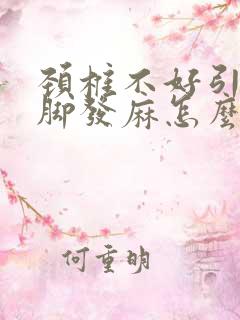 頚椎不好引
脚發麻怎麼
何重明